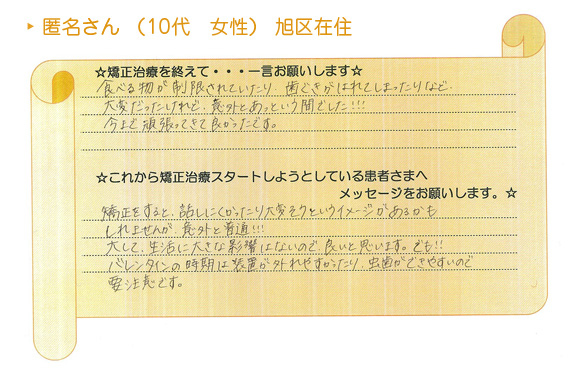 ▸ 匿名さん （10代　女性） 旭区在住
☆矯正治療を終えて・・・一言お願いします☆
食べる物が制限されていたり、歯ぐきがはれてしまったりなど、
大変だったけれど、意外とあっという間でした!!!
今まで頑張ってきて良かったです。
☆これから矯正治療スタートしようとしている患者さまへ
メッセージをお願いします。☆
矯正をすると、話しにくかったり大変そうというイメージがあるかも
しれませんが、意外と普通!!!
大して、生活に大きな影響はないので良いと思います。でも!!
バレンタインの時期は装置が外れやすかったり、虫歯ができやすいので
要注意です。